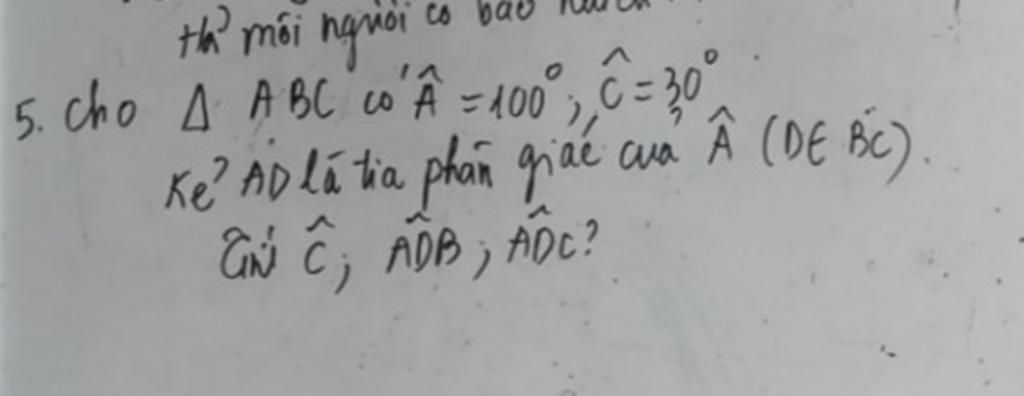 thì mỗi người có bao nhiêu
5. Cho Δ ABC có Â = 100°; Ĉ = 30°
Kẻ AD là tia phân giác của Â (D∈ BC).
Tính Ĉ; ADB̂; ADĈ?